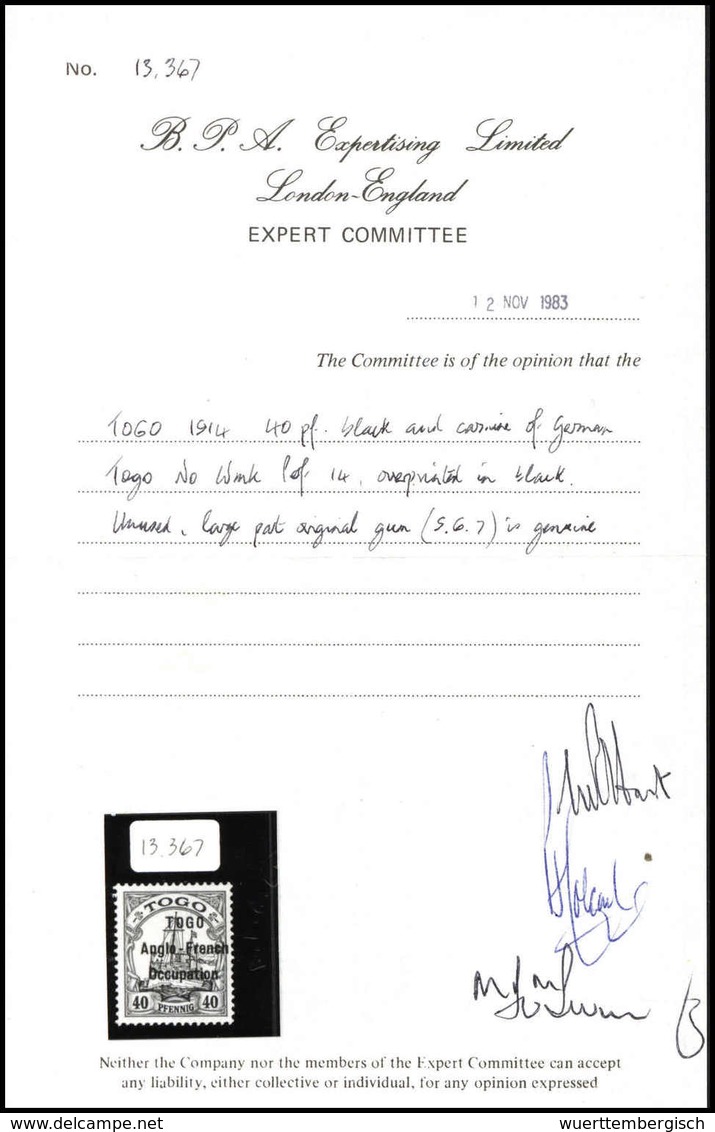 No. 13,367
B. P. A. Expertising Limited
London-England
EXPERT COMMITTEE
12 NOV 1983
The Committee is of the opinion that the
TOGO 1914 40 pf. black and carmine of German
Togo No Wmk Perf 14, overprinted in black.
Unused, large part original gum (S.G. 7) is genuine
13.367
TOGO
TOGO
Anglo-French
Occupation
40 PFENNIG 40
Neither the Company nor the members of the Expert Committee can accept
any liability, either collective or individual, for any opinion expressed
delcampe.net
wuerttembergisch